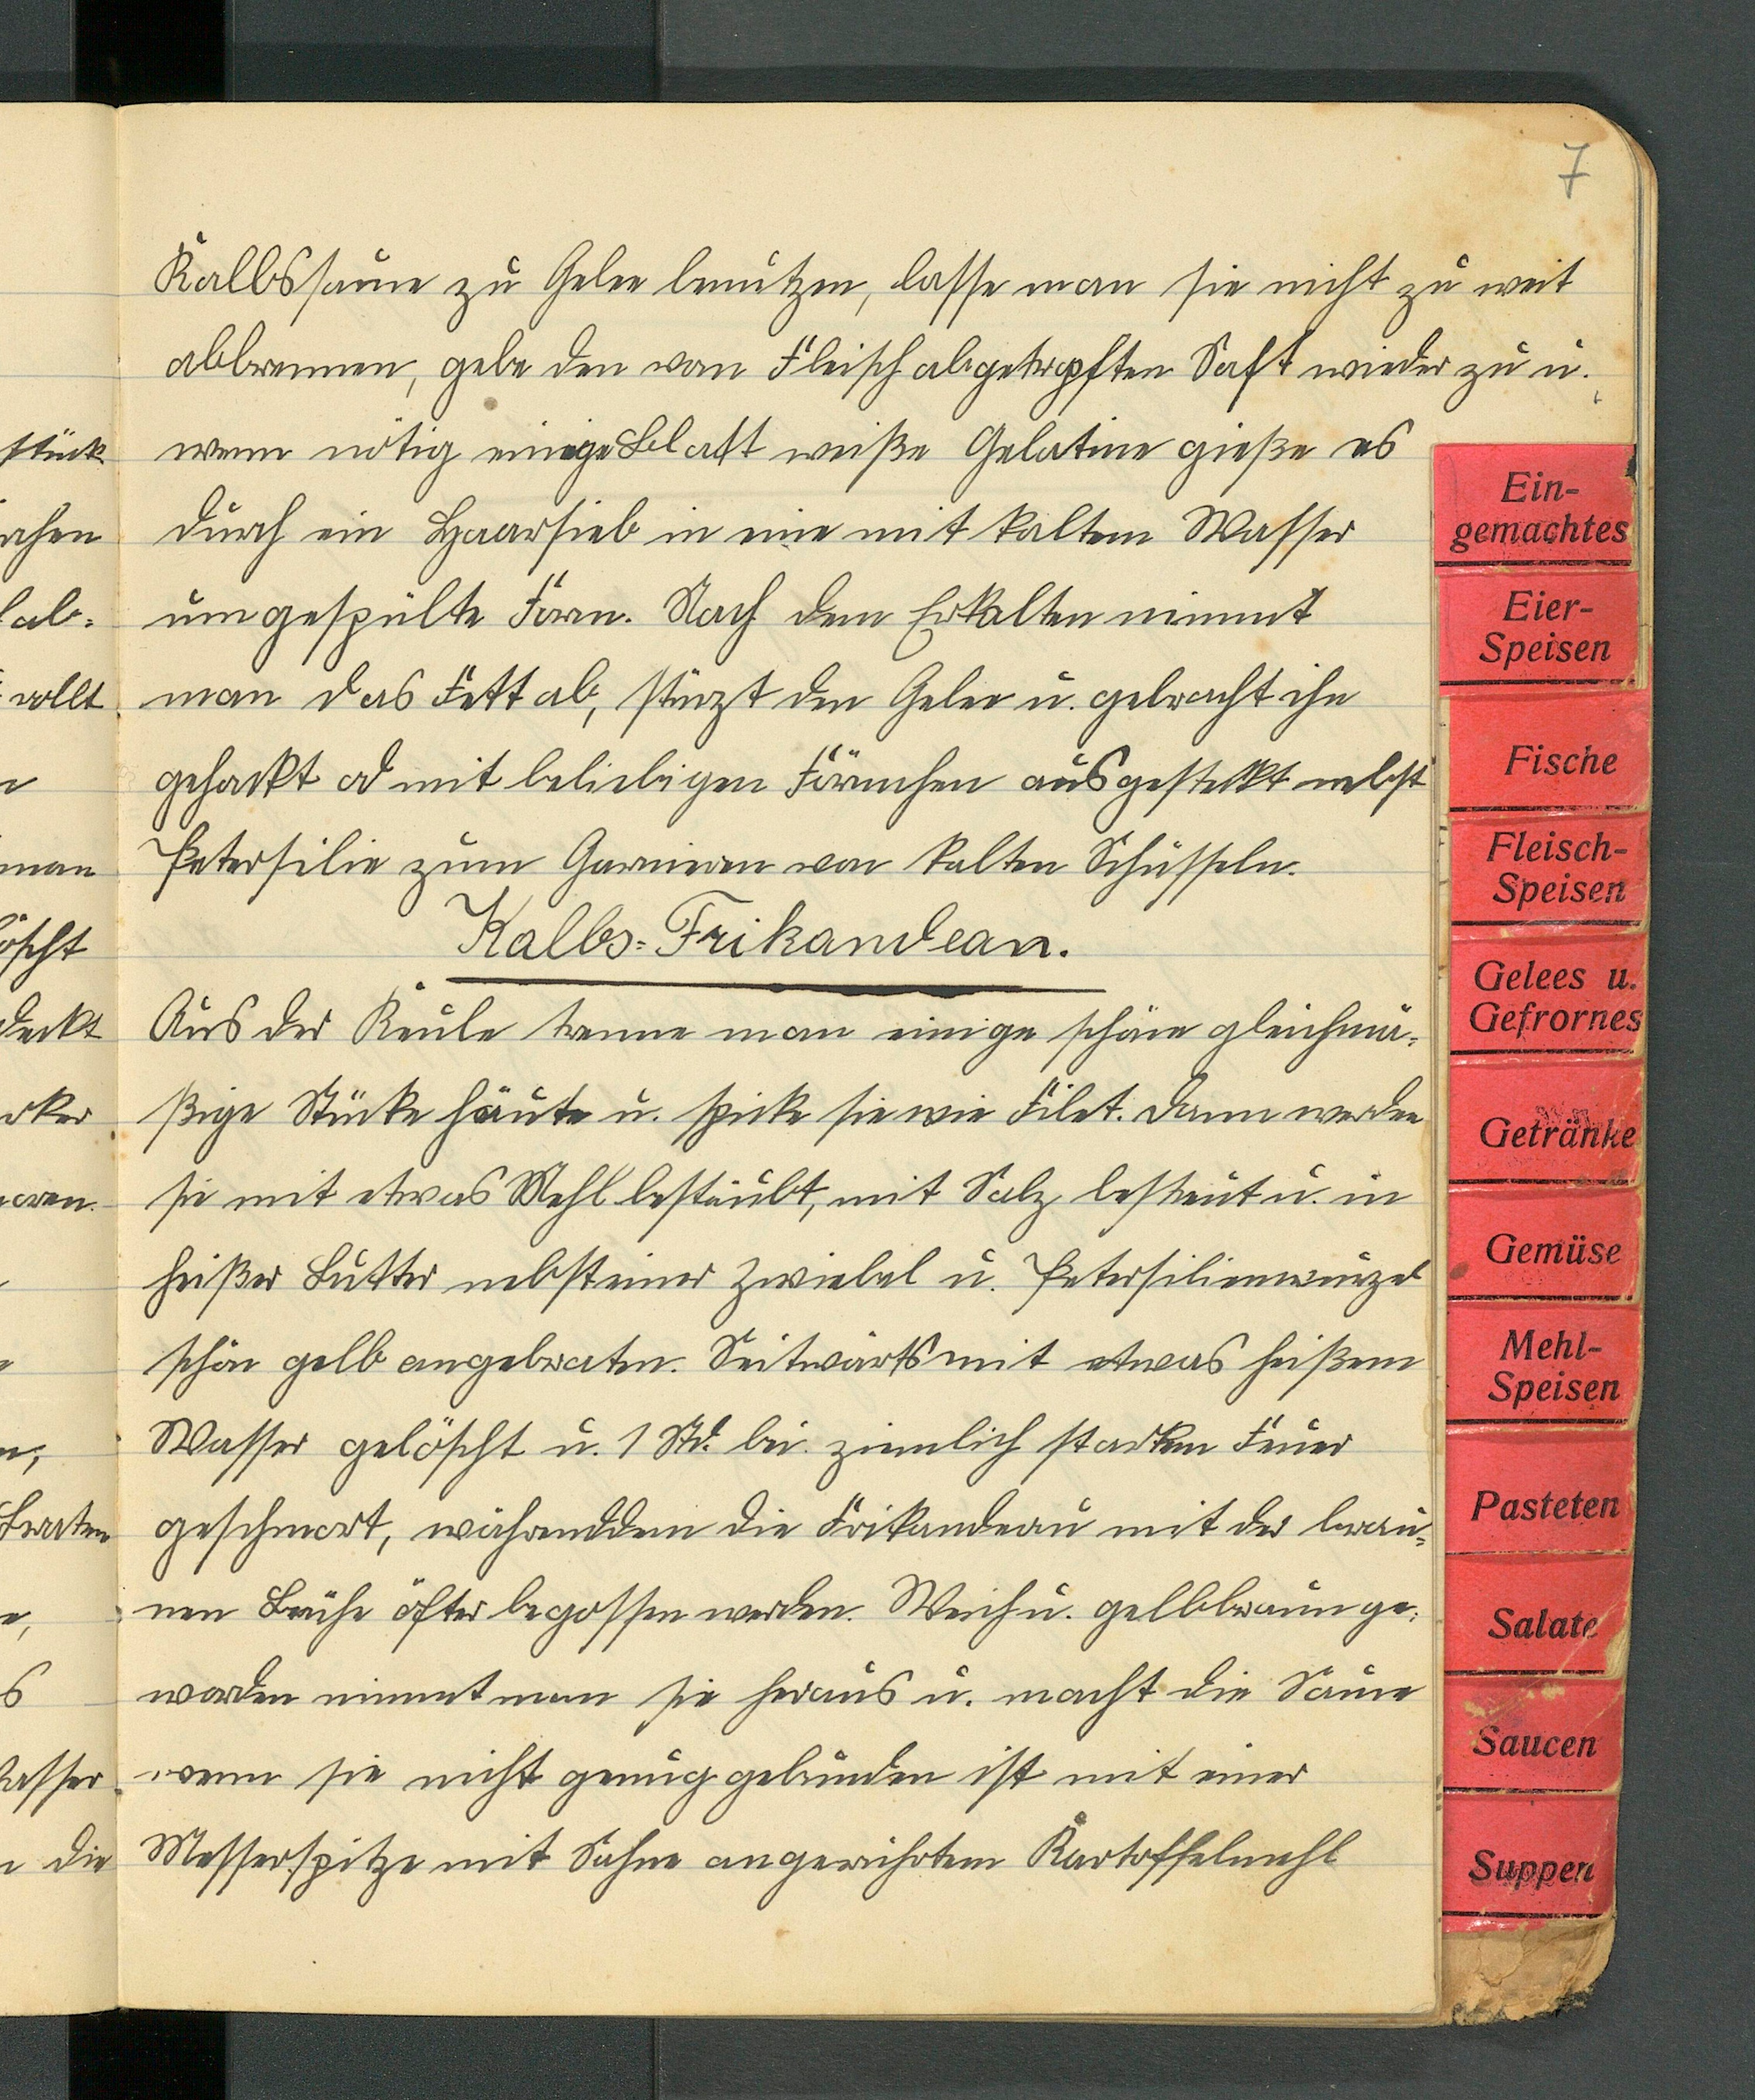 7
Kalbssauce zu Gelee benutzen, lasse man sie nicht zu weit
abbrennen, gebe den vom Fleisch abgetropften Saft wieder zu u.
wenn nötig einige Blatt weiße Gelatine gieße es
durch ein Haarsieb in eine mit kaltem Wasser
umgespülte Form. Nach dem Erkalten nimmt
man das Fett ab, stürzt den Gelee u. gebracht ihn
gehackt od mit beliebigen Förmchen ausgestekt nebst
Petersilie zum Garnieren von kalten Schüsseln.
Kalbs-Frikandeau.
Aus der Keule trenne man einige schöne gleichmä-
ßige Stücke häute u. spicke sie wie Filet. Dann werden
sie mit etwas Mehl bestäubt, mit Salz bestreut u. in
heißer Butter nebst einer Zwiebel u. Petersilienwurzel
schön gelb angebraten. Seitwärts mit etwas heißem
Wasser gelöscht u. 1 Std. bei ziemlich starken Feuer
geschmort, währenddem die Frikandeau mit der brau-
nen Brühe öfter begossen werden. Weich u. gelbbraun ge-
worden nimmt man sie heraus u. macht die Sauce
wenn sie nicht genug gebunden ist mit einer
Messerspitze mit Sahne angerührtem Kartoffelmehl
Ein-
gemachtes
Eier-
Speisen
Fische
Fleisch-
Speisen
Gelees u.
Gefrornes
Getränke
Gemüse
Mehl-
Speisen
Pasteten
Salate
Saucen
Suppen